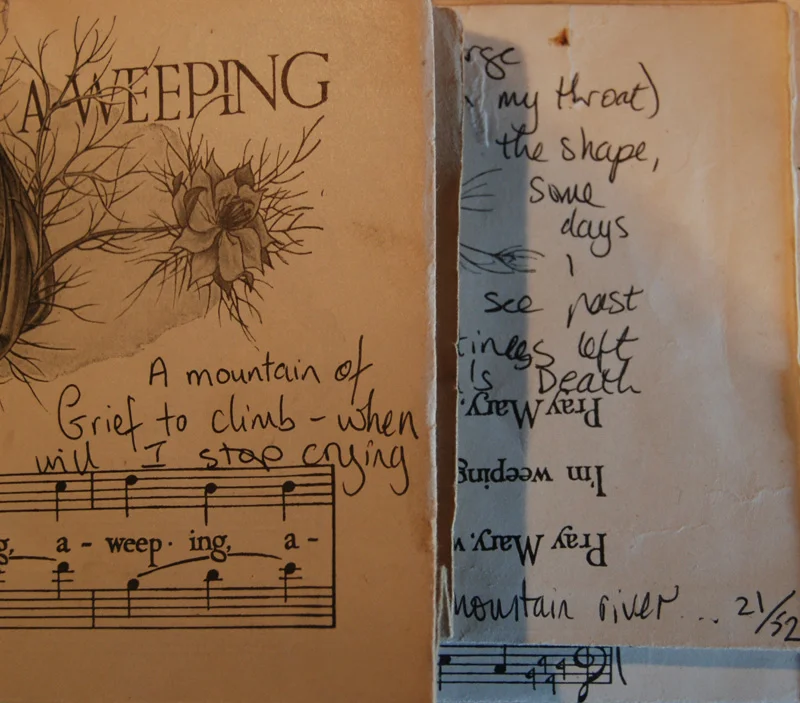 A WEEPING
A mountain of
Grief to climb - when
will I stop crying
g, a - weep - ing, a -
my throat)
the shape,
some
days
I
see past
left
Death
Pray Mary.
I'm weeping
Pray Mary.
mountain river ... 21/52